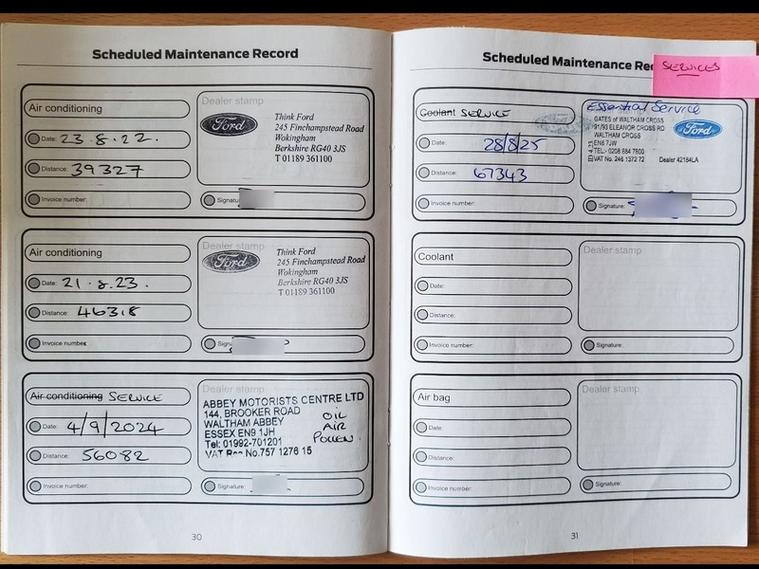 Scheduled Maintenance Record
Air conditioning
Date: 23.8.22.
Distance: 39327
Invoice number:
Dealer stamp
Ford
Think Ford
245 Finchampstead Road
Wokingham
Berkshire RG40 3JS
T 01189 361100
Signatu
Air conditioning
Date: 21.8.23.
Distance: 46318
Invoice number:
Dealer stamp
Ford
Think Ford
245 Finchampstead Road
Wokingham
Berkshire RG40 3JS
T 01189 361100
Signa
Air conditioning SERVICE
Date: 4/9/2024
Distance: 56082
Invoice number:
Dealer stamp
ABBEY MOTORISTS CENTRE LTD
144, BROOKER ROAD
WALTHAM ABBEY
ESSEX EN9 1JH
Tel: 01992-701201
VAT Reg No.757 1276 15
OIL
AIR
POLLEN
Signature:
30
Scheduled Maintenance Re
SERVICES
Coolant SERVICE
Date: 28/8/25
Distance: 67343
Invoice number:
Essential Service
GATES of WALTHAM CROSS
91/93 ELEANOR CROSS RD
WALTHAM CROSS
EN8 7JW
TEL:- 0208 884 7800
VAT No. 246 1372 72 Dealer 42164LA
Ford
Signature:
Coolant
Date:
Distance:
Invoice number:
Dealer stamp
Signature:
Air bag
Date:
Distance:
Invoice number:
Dealer stamp
Signature:
31